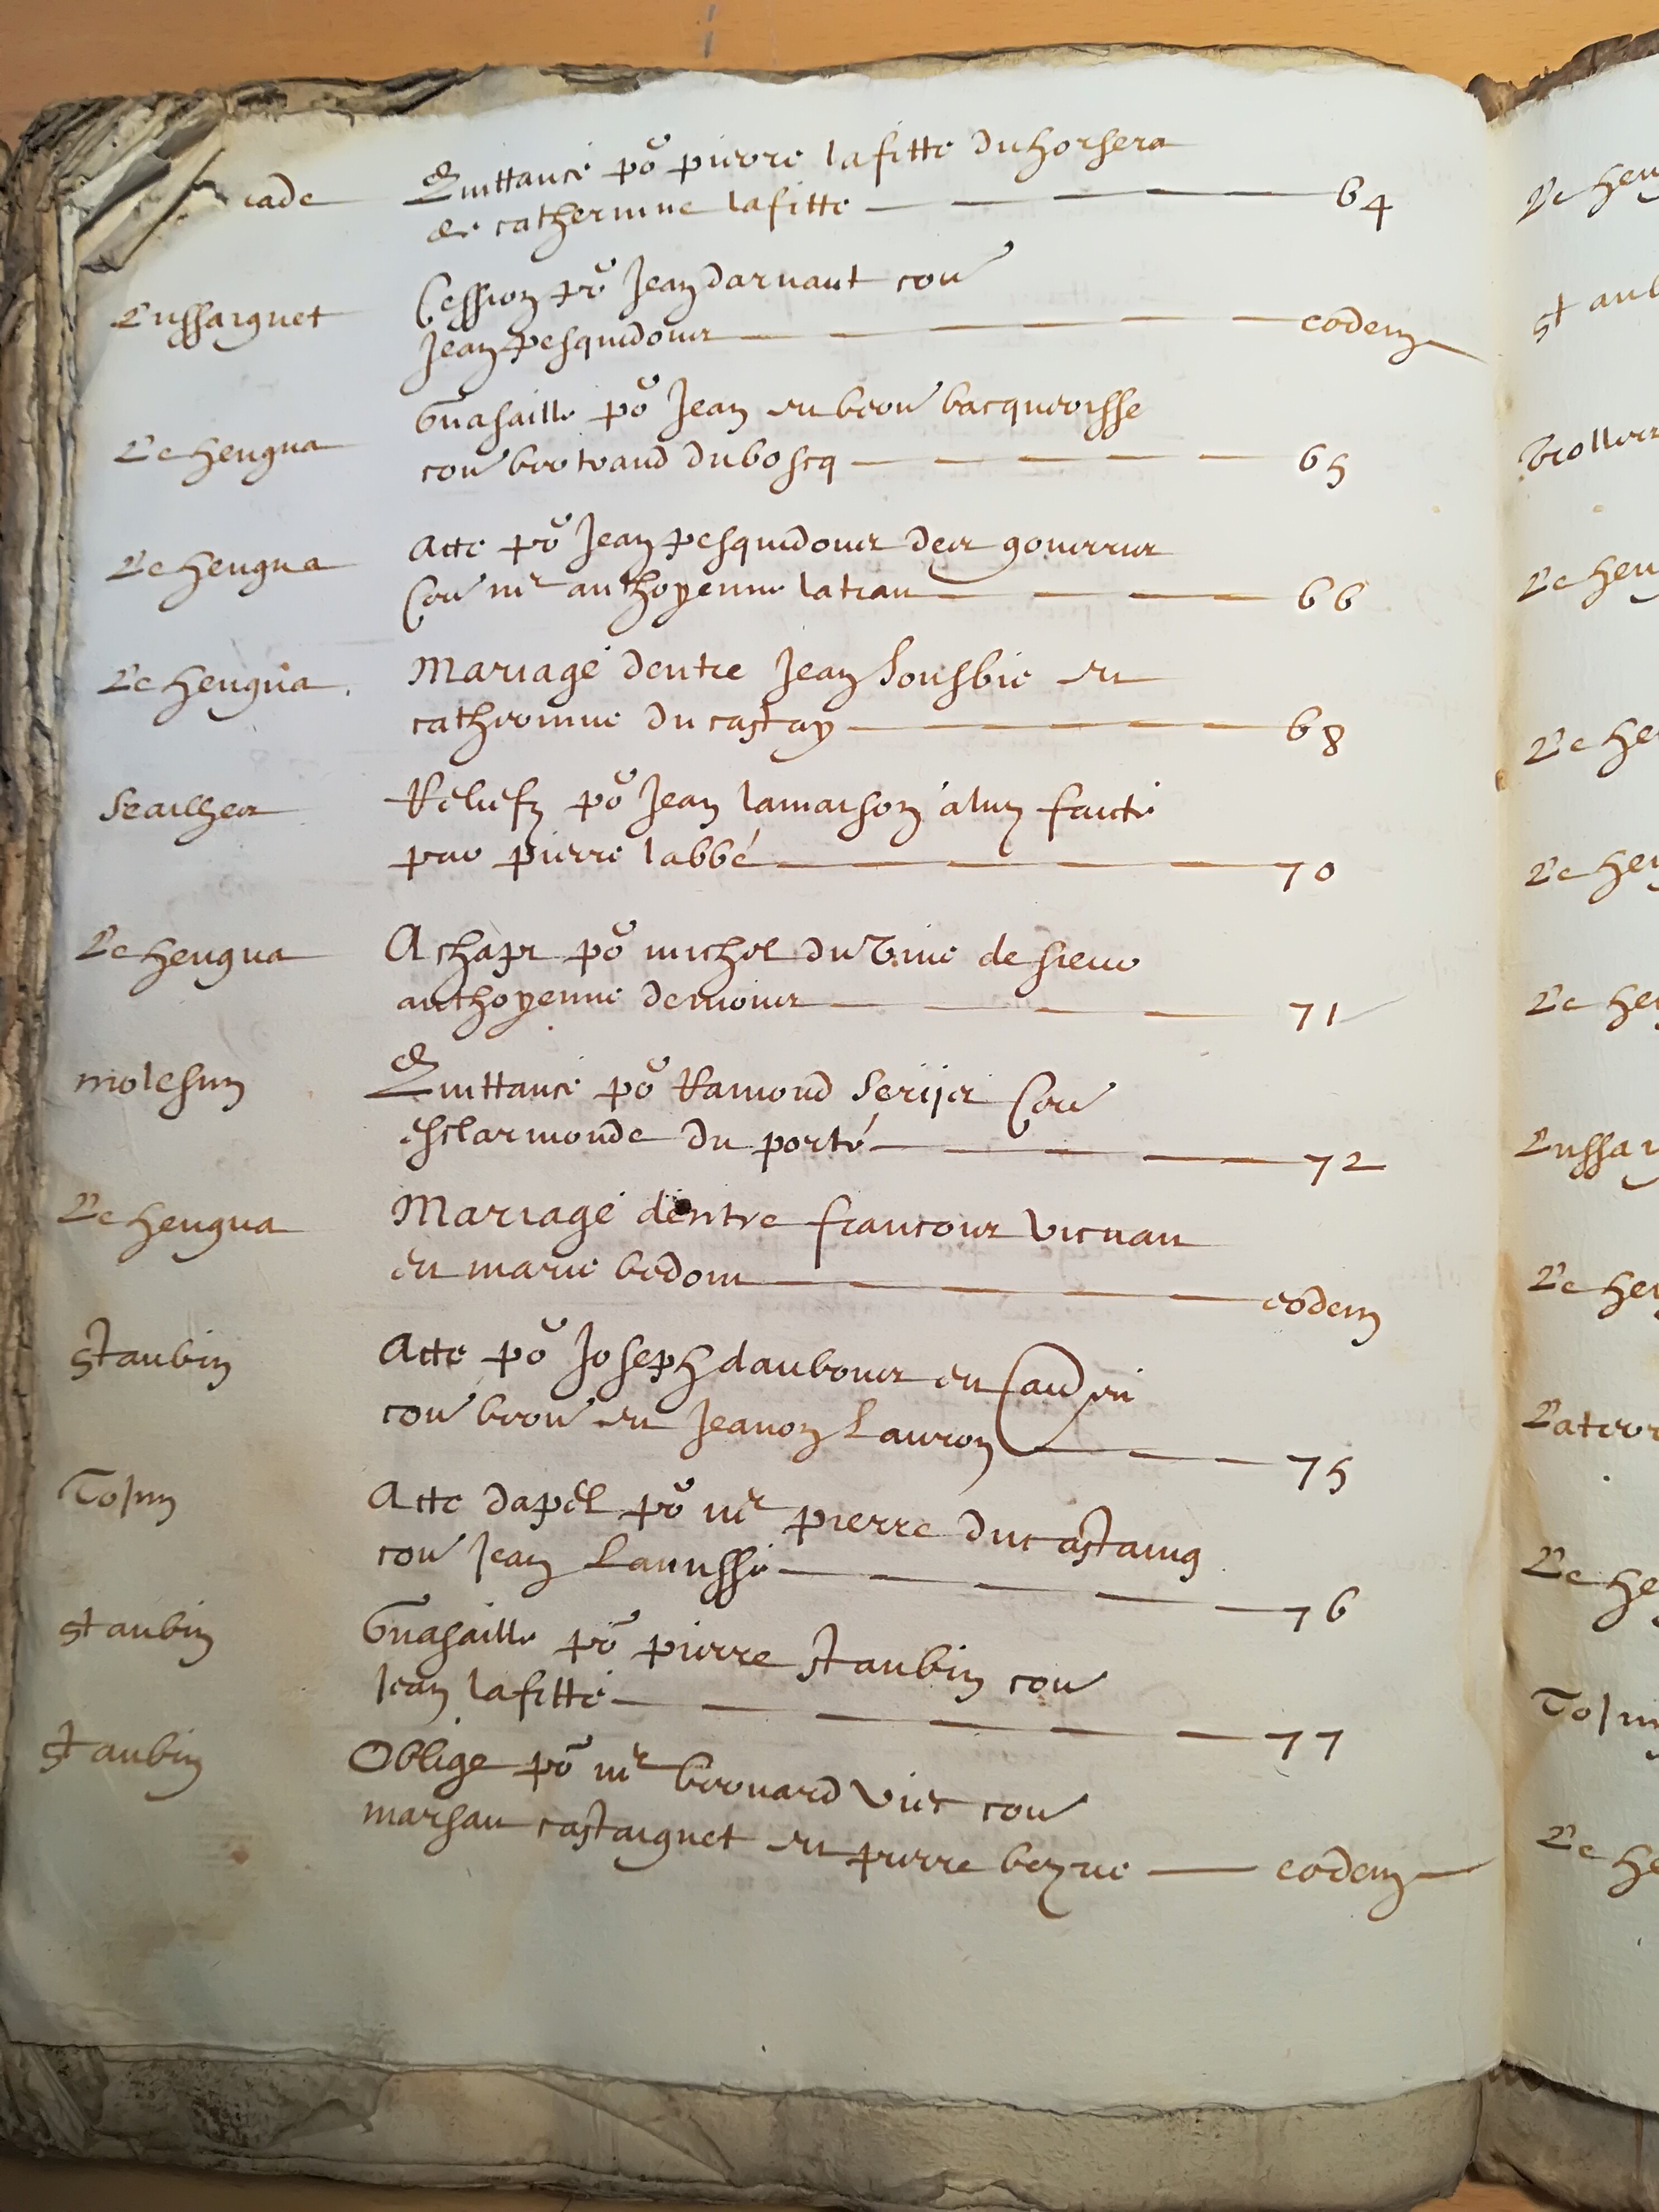 cade Quittance por pierre lafitte du horsera
de catherinne lafitte 64
Lussaignet Cession por Jean darnaut con
Jean pesquidoux eodem
Le hengua Guasaille por Jean et beon bacquerisse
con bertrand duboscq 65
Le hengua Acte por Jean pesquidoux
Con mr anthoyenne latrau 66
Le hengua Mariage dentre Jean et
catherinne du castay 68
Seailhes Reliefz por Jean lamaison a luy faicte
par pierre labbé 70
Le hengua Achapt por michel du Vine de sieur
anthoyenne 71
molesun Quittance por Ramond Con
esclarmonde du porté 72
Le hengua Mariage dentre francoix vignau
et marie bedout eodem
St aubin Acte por Joseph et
con et Jeanon Lauron 75
Tojun Acte dapel por mr pierre ducastaing
con Jean Lanusse 76
St aubin Guasaille por pierre St aubin con
Jean lafitte 77
St aubin Oblige por mr bernard con
marsau castaignet et pierre eodem
Le hen
St aub
Le hen
Le he
Le hen
Le hen
Lussai
Le hen
Le he
Tojun
Le he